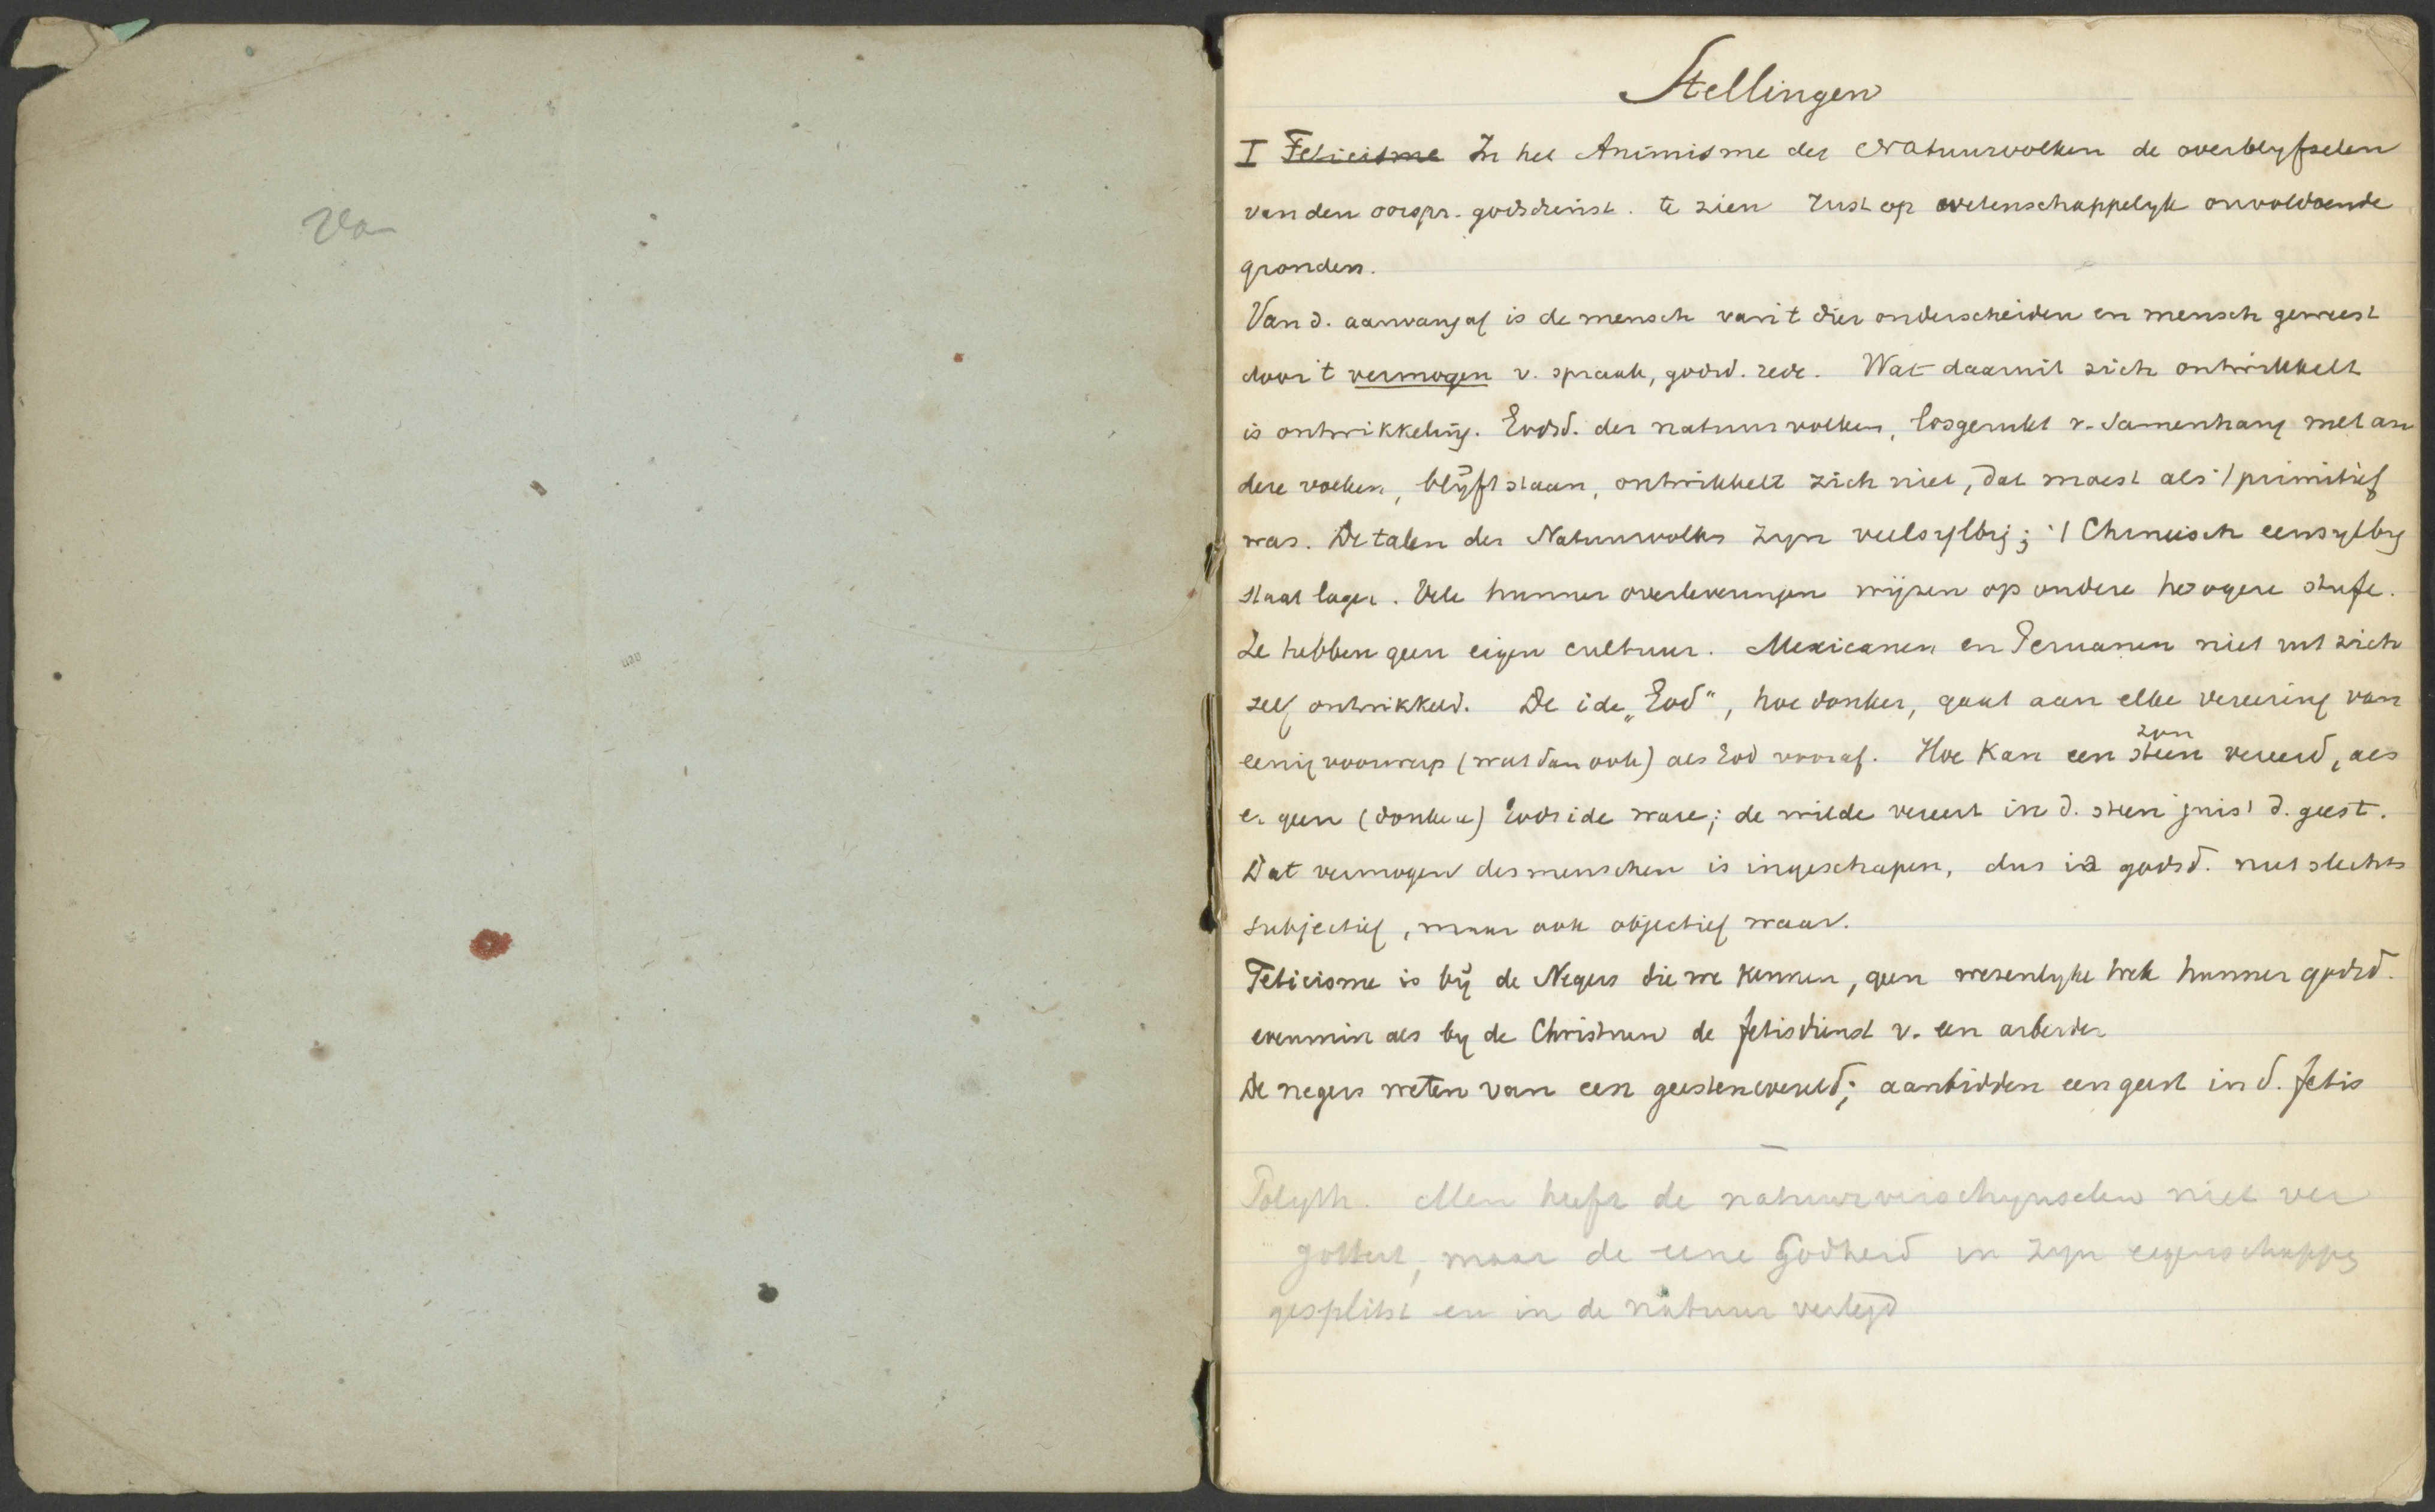 Va
Stellingen
I Feticisme In het Animisme der Natuurvolken de overblyfselen
van den oorspr. godsdienst. te zien rust op wetenschappelyk onvoldoende
gronden.
Van d. aanvang af is de mensch van 't dier onderscheiden en mensch geweest
door 't vermogen v. spraak, godsd. rede. Wat daaruit zich ontwikkelt
is ontwikkeling. Godsd. der natuurvolken, losgerukt v. samenhang met an
dere volken, blijft staan, ontwikkelt zich niet, dat moest als 't primitief
was. De talen der Natuurvolken zyn veelsylbig; 't Chineesch eensylbig
staat lager. Vele hunner overleveringen wijzen op andere hoogere stufe.
Ze hebben geen eigen cultuur. Mexicanen en Peruanen niet uit zich
zelf ontwikkeld. De ide „God", hoe donker, gaat aan elke vereering van
eenig voorwerp (wat dan ook) als God vooraf. Hoe kan een steen zon vereerd, als
er geen (donkere) Godside ware; de wilde vereert in d. steen juist d. geest.
Dat vermogen des menschen is ingeschapen, dus is godsd. niet slechts
subjectief, maar ook objectief waar.
Feticisme is bij de Negers die we kennen, geen wezenlyke trek hunner godsd.
evenmin als by de Christenen de fetisdienst v. een arbeider
De negers weten van een geestenwereld; aanbidden een geest in d. fetis
Polyth. Men heeft de natuurverschynselen niet ver
gottert, maar de eene Godheid in zyn eigenschappen
gesplitst en in de natuur verlegd